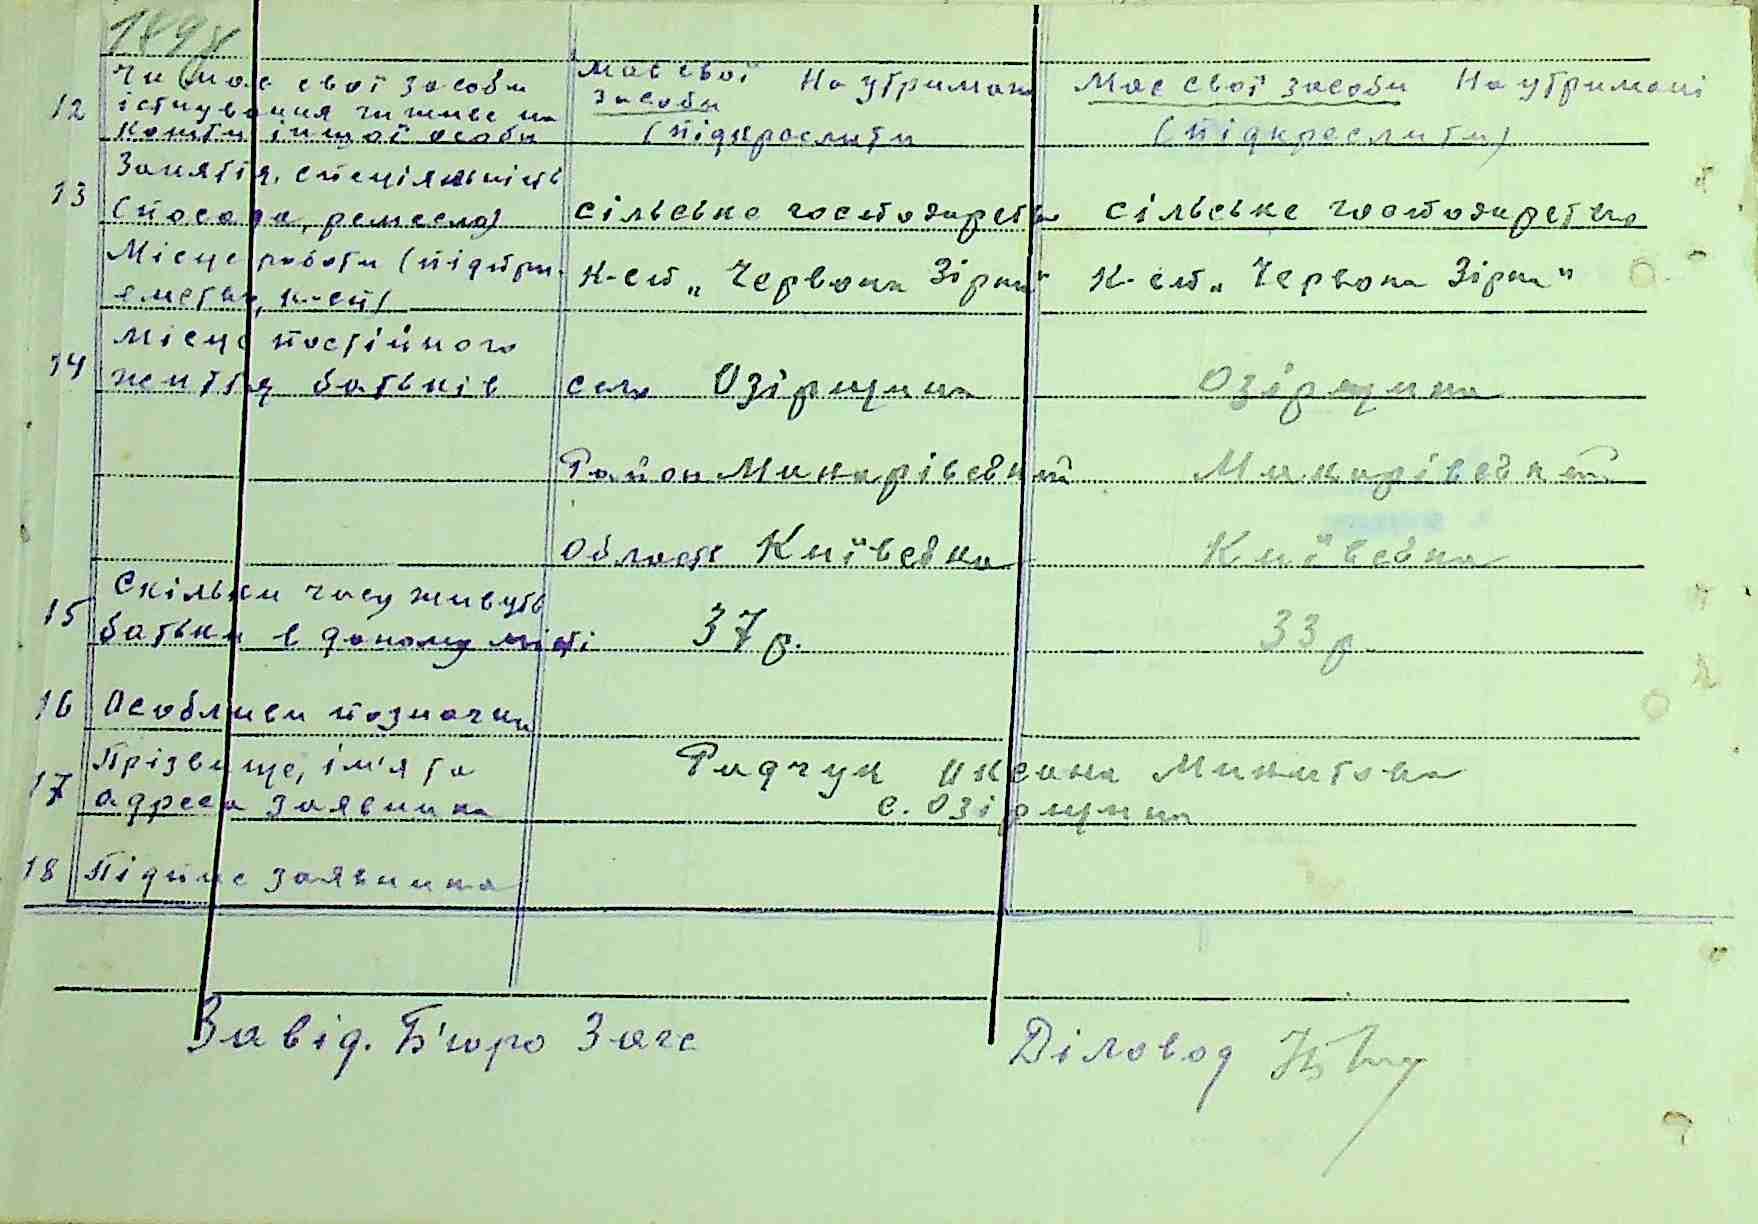 12 Чи має свої засоби Має свої На утриман Має свої засоби На утримані
існування чи живе на засоби
кошти іншої особи (підкреслити (підкреслити)
13 Заняття, спеціяльність
(посада, ремесло) сільське господарство сільське господарство
Місце роботи (підпри- К-сп „Червона Зірка" К-сп „Червона Зірка"
ємство,
14 Місце постійного
життя батьків село Озірщина Озірщина
Район Макарівський Макарівський
Область Київська Київська
15 Скільки часу живуть
батьки в даному місті 37 р. 33 р
16 Особливи позначки
17 Прізвище, ім'я та Радчук Оксана Микитова
адреса заявника с. Озірщина
18 Підпис заявника
Завід. Б'юро Загс Діловод